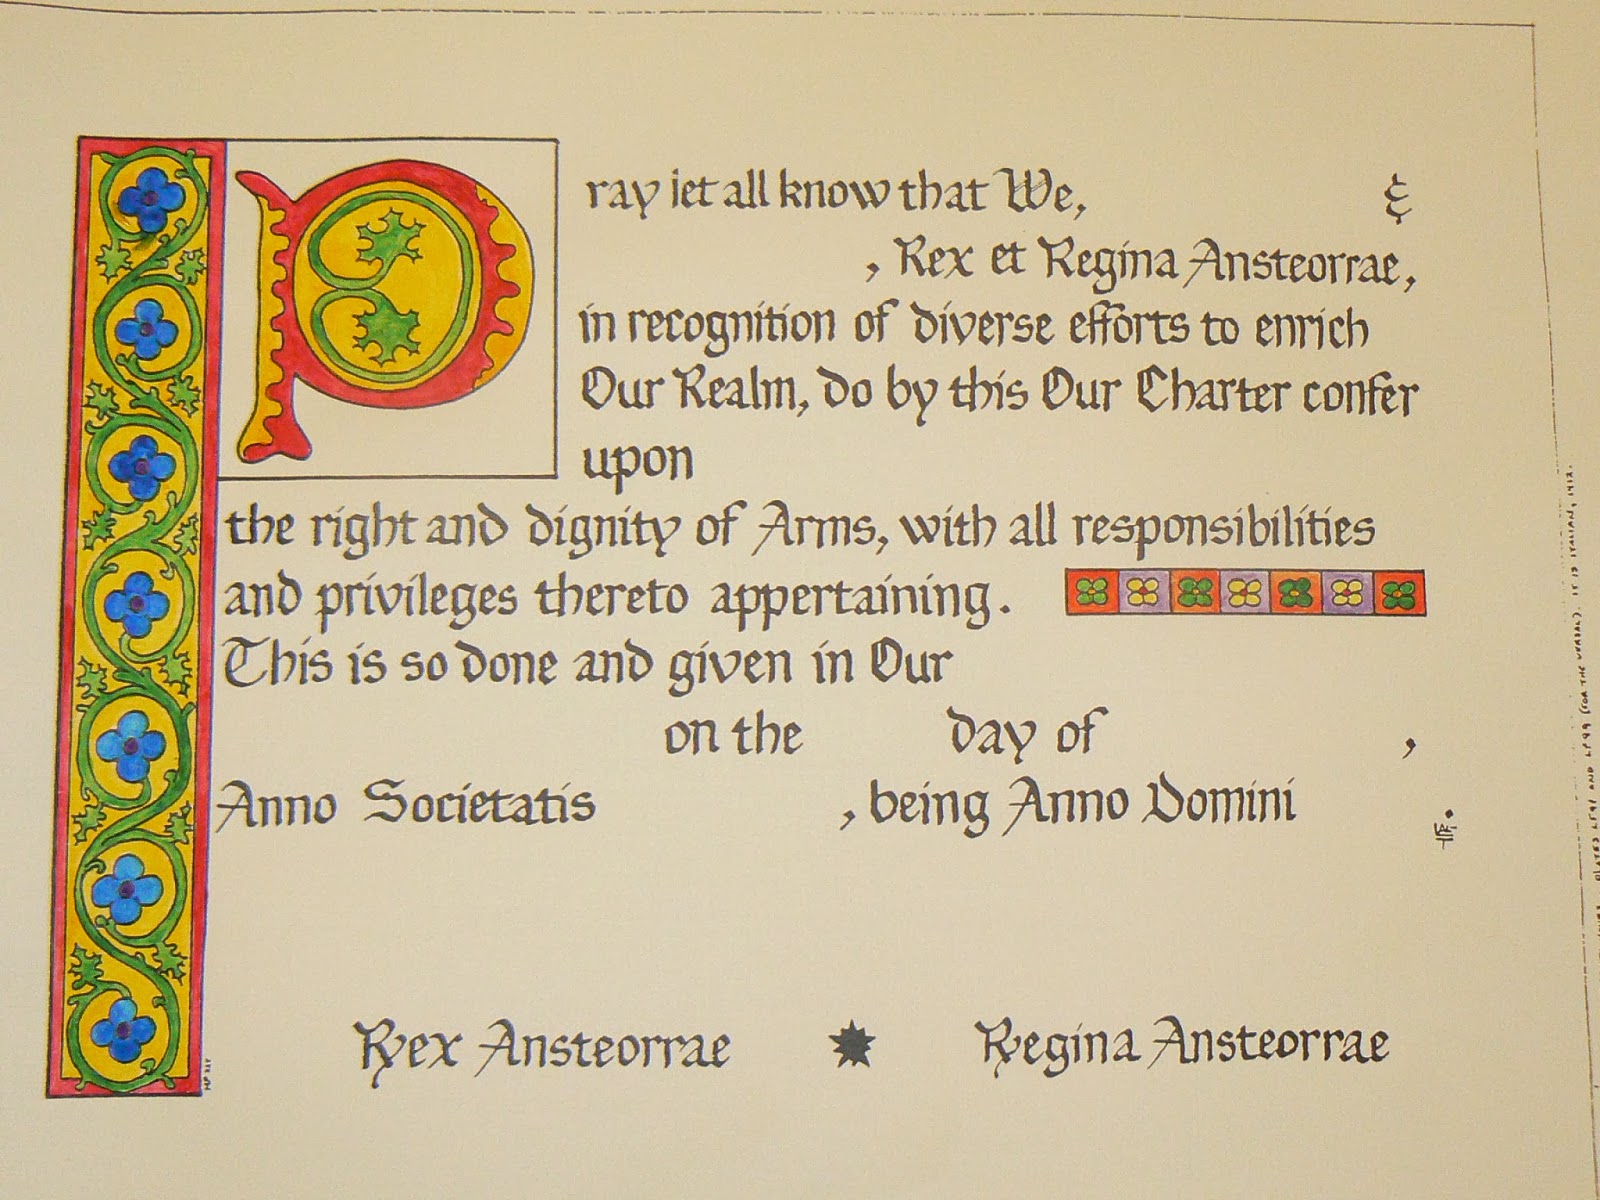 Pray let all know that We, &
, Rex et Regina Ansteorrae,
in recognition of diverse efforts to enrich
Our Realm, do by this Our Charter confer
upon
the right and dignity of Arms, with all responsibilities
and privileges thereto appertaining.
This is so done and given in Our
on the day of ,
Anno Societatis , being Anno Domini .
Rex Ansteorrae Regina Ansteorrae
(FOR THE VERSAL). IT IS ITALIAN, 1412.